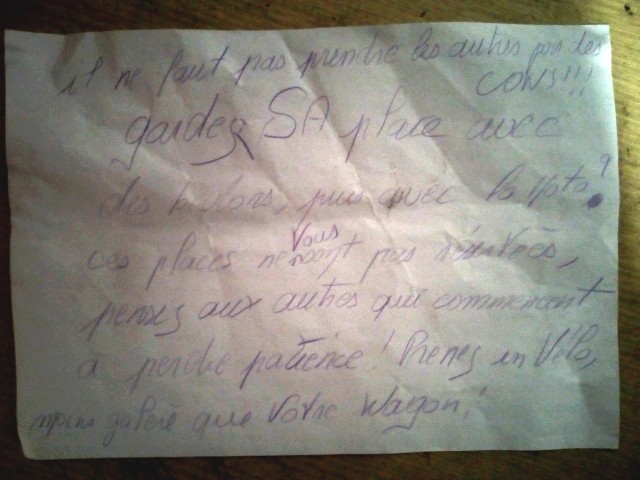 il ne faut pas prendre les autres pour des
CONS!!!
gardez SA place avec
des plots, puis avec la moto?
ces places ne vous sont pas réservées,
pensez aux autres qui commencent
à perdre patience! Prenez un Vélo,
moins galère que Votre Wagon!